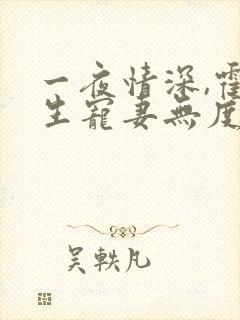 一夜情深,霍
生寵妻無度
吳軼凡